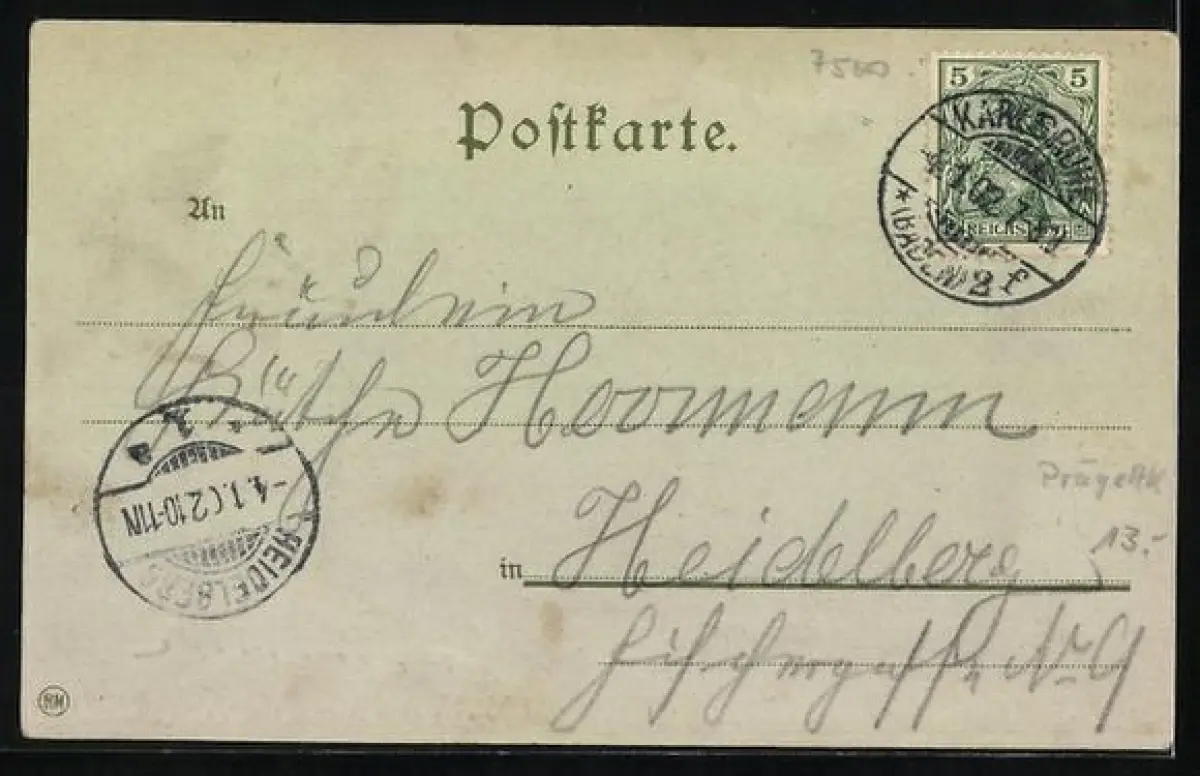 7500
5 5
Postkarte.
KARLSRUHE
4.1.02.7
* (BADEN) 2 f
REICHSPOST
An
Fräulein
Käthe Hoormann
1.
-4.1.02.10-11N
HEIDELBERG
PrägeAK
13.-
in Heidelberg
Fischergasse No 9